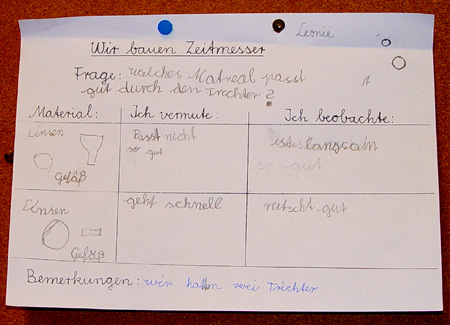 Leonie
Wir bauen Zeitmesser
Frage: welches Matreal passt
gut durch den Trichter?
Material: Ich vermute: Ich beobachte:
Linsen Passt nicht ist langsam
so gut so gut
Gefäß
Linsen geht schnell rutscht gut
Gefäß
Bemerkungen: wir hatten zwei Trichter